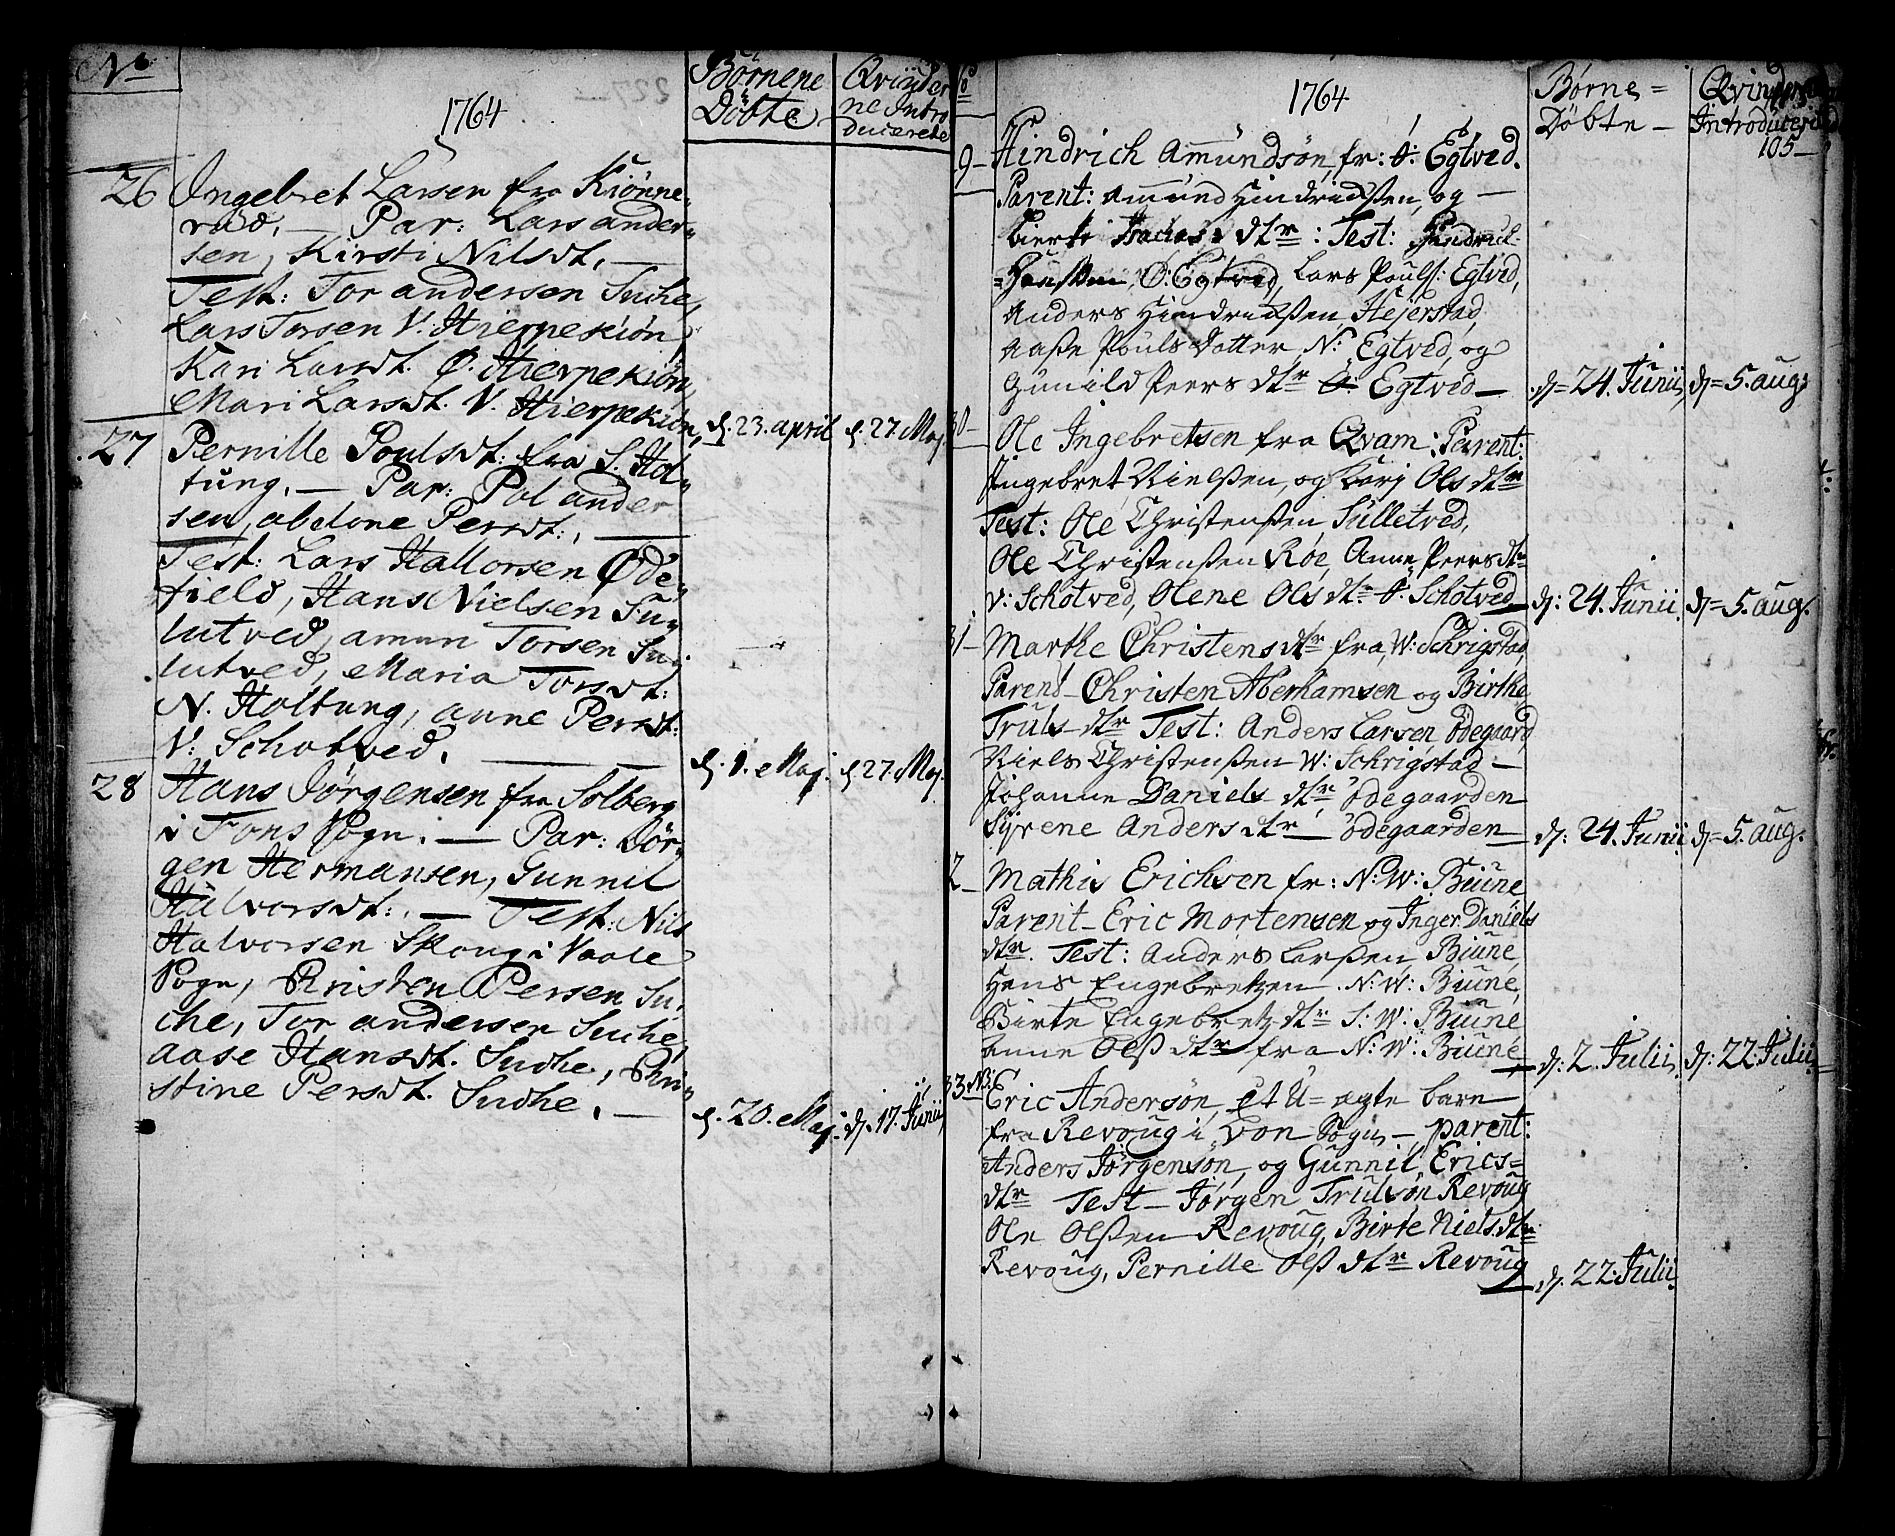 No
1764
Börnene
Döbte
Qvinder
ne Intro
ducerete
26 Ingebret Larsen fra Kiönne„
rud. — Par: Lars ander„
sen, Kirsti Nilsdt. —
Test: Tor andersen Suche,
Lars Torsen V. Hierpekiön,
Kari Larsdt. Ø. Hierpekiön,
Mari Larsdt. V. Hierpekiön, d. 23. april d. 27. Maj.
27 Pernille Poulsdt: fra S. Hol„
tung. — Par: Pol ander
sen, abelone Persdt:, —
Test: Lars Hallorsen Øde„
field, Hans Nielsen Su„
lutved, amun Torsen Su„
lutved, Maria Torsdt:
N. Holtung, anne Persdt:
V: Schotved. — d. 1. Maj. d. 27. Maj.
28 Hans Jörgensen fra Solberg
i Fons Sogn. — Par: Jör„
gen Hermansen, Gunnil
Halvorsdt:. — Test: Nils
Halvorsen Skoug i Vaale
Sogn, Christen Persen Su„
che, Tor andersen Suche,
aase Hansdt. Suche, Chri„
stine Persdt. Suche. — d. 20. Maj. d. 17. Junii,
1764
Børne =
Døbte —
Qvinderne
Introducerede
105 —
9 — Hindrich Amundsøn, fr: O: Egtved.
Parent: Amund Hindrichsen, og —
Bierte Isachs dtr: Test: Hindrich
= Hansen, O: Egtved, Lars Pouls: Egtved,
Anders Hindrichsen, Hejerstad,
Aase Pouls Datter N: Egtved, og
Gunild Peers dtr O: Egtved — d = 24. Junii, d = 5. aug:
30 — Ole Ingebretsen fra Qvam: Parent:
Ingebret Nielsen, og Karj Ols dtr
Test: Ole Christensen, Sulletved,
Ole Christensen Røe, Anne Peers dtr
V: Schotved, Olene Ols dtr O: Schotved d: 24. Junii. d = 5. aug.
31 — Marthe Christens dtr fra, W: Schrigstad,
Parent — Christen Aberhamsen og Birthe
Truls — dtr Test: Anders Larsen, Ødegaard
Niels Christensen W: Schrigstad —
Johanne Daniels — dtr Ødegaarden
Syrene Anders dtr — Ødegaarden — d: 24. Junii: d = 5. aug.
2 — Mathis Erichsen fr: N: W: Biune
Parent — Eric Mortensen og Inger Daniels
dtr. Test: Anders Larsen Biune,
Hans Engebretzen. N: W: Biune,
Birte Engebretz dtr S: W: Biune
Anne Olss dtr fra N: W: Biune, d: 2. Julii, d: 22. Julii
33 NB: Eric Andersøn, et U = ægte barn
fra Revoug i Bon Sogn —, parent:
Anders Jørgensøn, og Gunnil, Erics =
dtr Test — Jørgen Trulsøn Revoug
Ole Olssen Revoug, Birte Niels dtr
Revoug, Pernille Olss dtr Revoug d. 22. Julii.